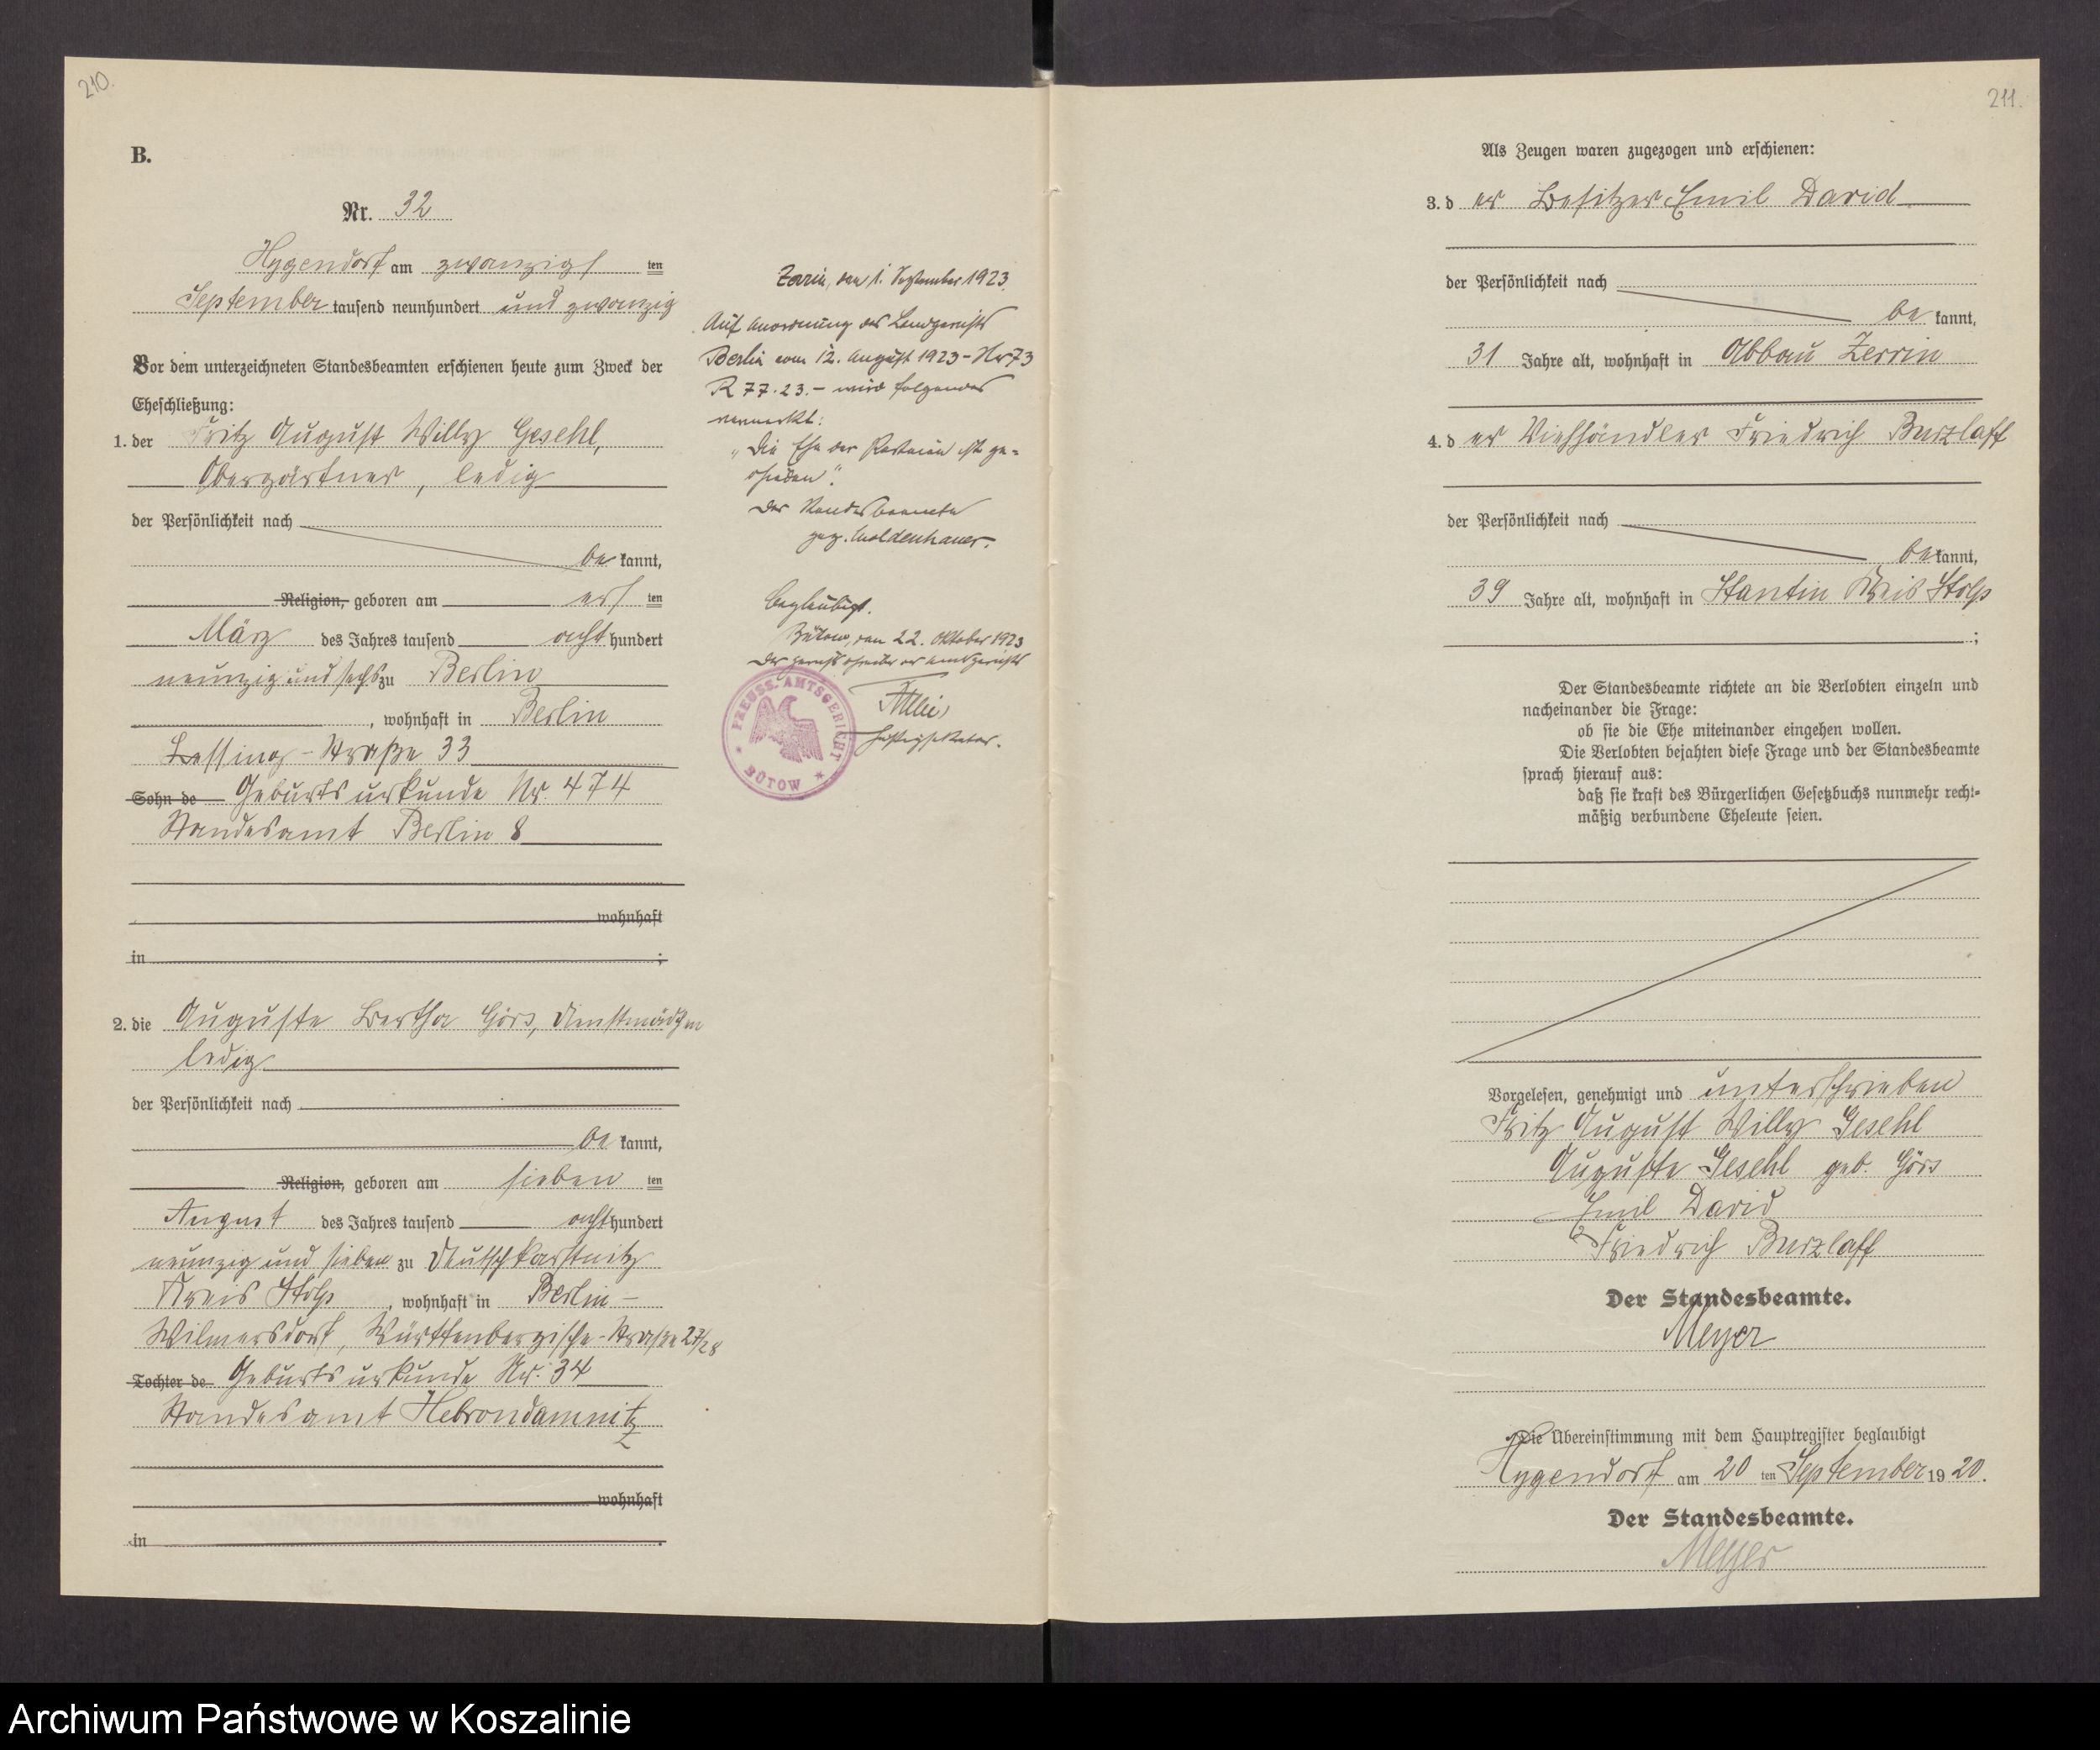 210.
B.
Nr. 32
Hygendorf am zwanzigsten
September tausend neunhundert und zwanzig
Vor dem unterzeichneten Standesbeamten erschienen heute zum Zweck der
Eheschließung:
1. der Fritz August Willy Gesehl,
Obergärtner, ledig
der Persönlichkeit nach
bekannt,
Religion, geboren am ersten
März des Jahres tausend achthundert
neunzig und sechs zu Berlin
, wohnhaft in Berlin
Lessing-Straße 33
Sohn de Geburtsurkunde Nr. 474
Standesamt Berlin 8
wohnhaft
in ;
2. die Auguste Bertha Görs, Dienstmädchen
ledig
der Persönlichkeit nach
bekannt,
Religion, geboren am siebenten
August des Jahres tausend achthundert
neunzig und sieben zu Deutschkarstnitz
Kreis Stolp, wohnhaft in Berlin-
Wilmersdorf, Württenbergische-Straße 27/28
Tochter de Geburtsurkunde Nr. 34
Standesamt Hebrondamnitz
wohnhaft
in .
Zerrin, den 1. September 1923.
Auf Anordnung des Landgerichts
Berlin vom 12. August 1923 - Nr 73
R 77.23. - wird folgendes
vermerkt:
„Die Ehe der Parteien ist ge-
schieden".
Der Standesbeamte
gez. Moldenhauer.
Beglaubigt.
Bütow, den 22. Oktober 1923
Der Gerichtsschreiber des Amtsgerichts
Justizsekretär.
PREUSS. AMTSGERICHT
* BÜTOW *
211.
Als Zeugen waren zugezogen und erschienen:
3. der Besitzer Emil David
der Persönlichkeit nach
bekannt,
31 Jahre alt, wohnhaft in Abbau Zerrin
4. der Viehhändler Friedrich Burzlaff
der Persönlichkeit nach
bekannt,
39 Jahre alt, wohnhaft in Stantin Kreis Stolp
;
Der Standesbeamte richtete an die Verlobten einzeln und
nacheinander die Frage:
ob sie die Ehe miteinander eingehen wollen.
Die Verlobten bejahten diese Frage und der Standesbeamte
sprach hierauf aus:
daß sie kraft des Bürgerlichen Gesetzbuchs nunmehr recht-
mäßig verbundene Eheleute seien.
Vorgelesen, genehmigt und unterschrieben
Fritz August Willy Gesehl
Auguste Gesehl geb. Görs
Emil David
Friedrich Burzlaff
Der Standesbeamte.
Meyer
Die Übereinstimmung mit dem Hauptregister beglaubigt
Hygendorf am 20 ten September 1920.
Der Standesbeamte.
Meyer
Archiwum Państwowe w Koszalinie